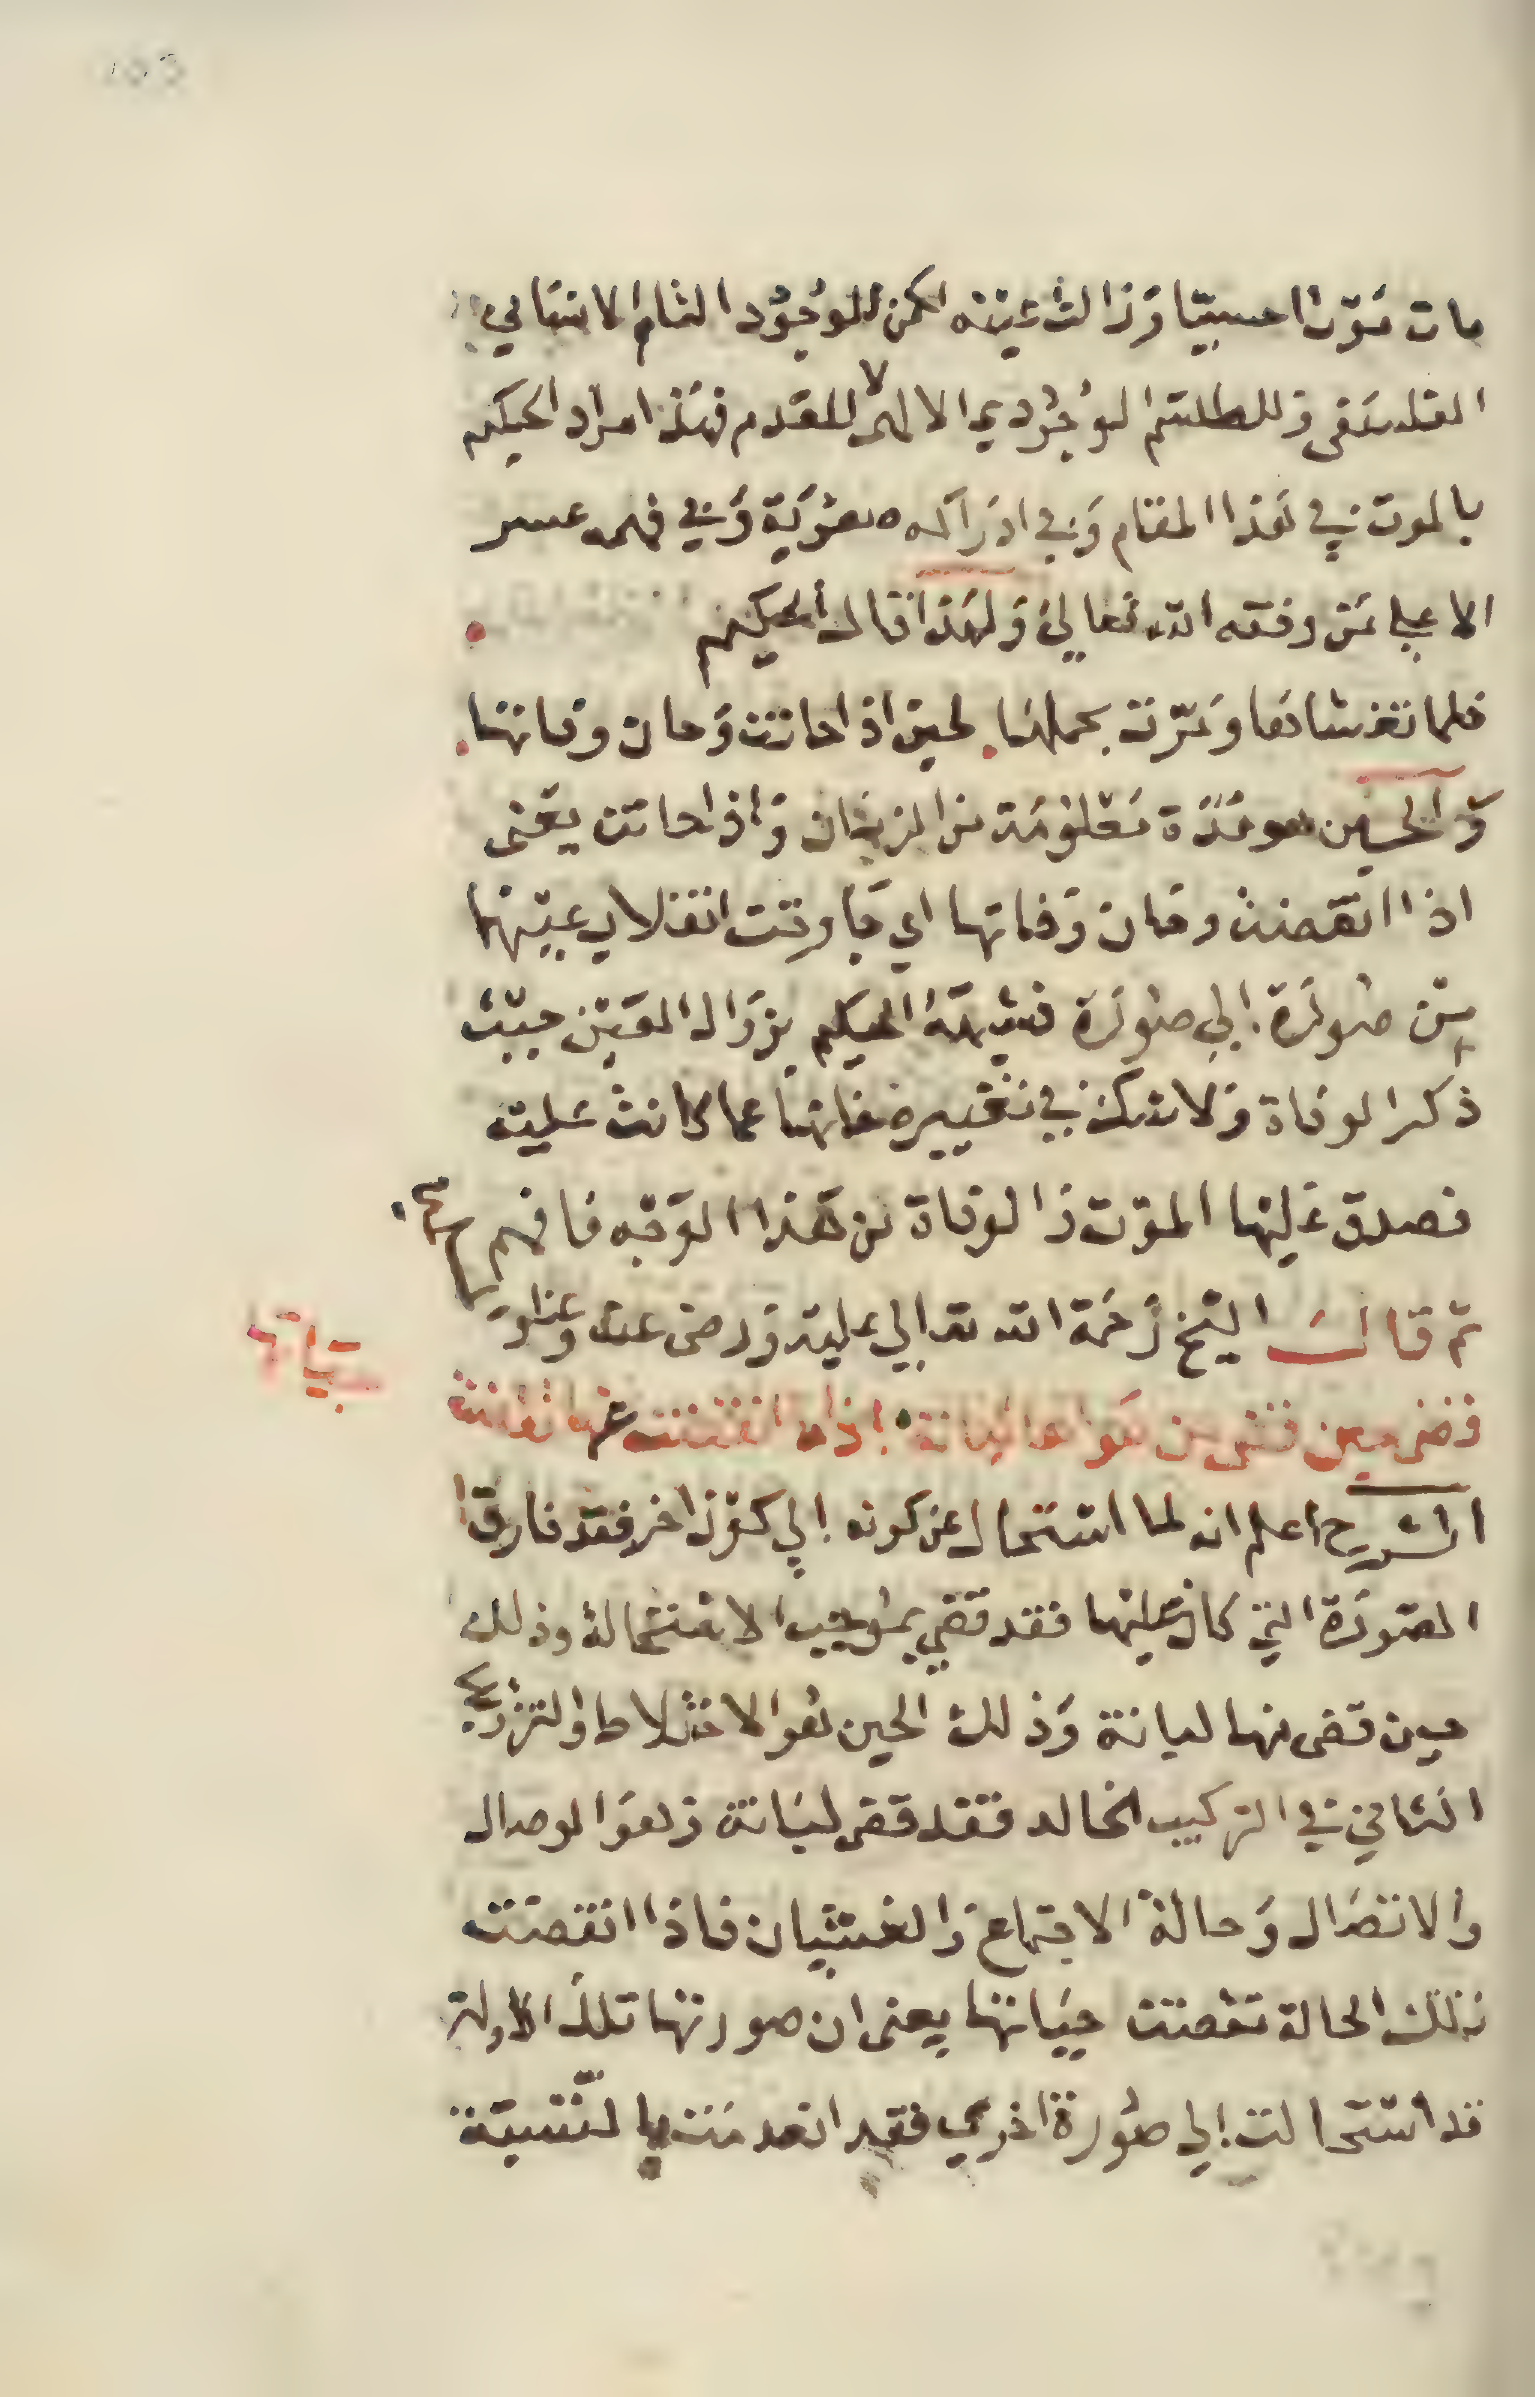 مات موتا حسيّا وزالت عينه لكن للوجود الثام الانساني
الفلسفى وللطلسم الوجودي الالهى لا للعدم فهذا مراد الحكيم
بالموت في هذا المقام وفي ادراكه صعوبة وفي فهمه عسر
الا على من وفقه الله تعالى ولهذا قال الحكيم
فلما تغشاها ومرت بحملها لحين اذا حانت وحان وفاتها
والحين هو مدة معلومة من الزمان واذا حانت يعنى
اذا انقضت وحان وفاتها اي جا وقت انقلاب عينها
من صورة الى صورة فشبهه الحكيم بزوال العين حيث
ذكر الوفاة ولا شك في تغيير صفاتها عما كانت عليه
فصدق عليها الموت والوفاة من هذا الوجه فافهم
ثم قال الشيخ رحمة الله تعالى عليه ورضى عنه وعنا
فقضى حين قضى من هواها لبانة اذا انقضت عنها تقضت
حياتها
الشرح اعلم انه لما استحال عن كونه الى كون اخر فقد فارق
الصورة التي كان عليها فقد قضي بموجب الاستحالة وذلك
حين قضى منها لبانة وذلك الحين هو الاختلاط والتزويج
الثاني في التركيب الخالد فقد قضى لبانته وهو الوصال
والاتصال وحالة الاجتماع والغشيان فاذا انقضت
تلك الحالة تقضت حياتها يعنى ان صورتها تلك الاولة
قد استحالت الى صورة اخرى فقد انعدمت بالنسبة